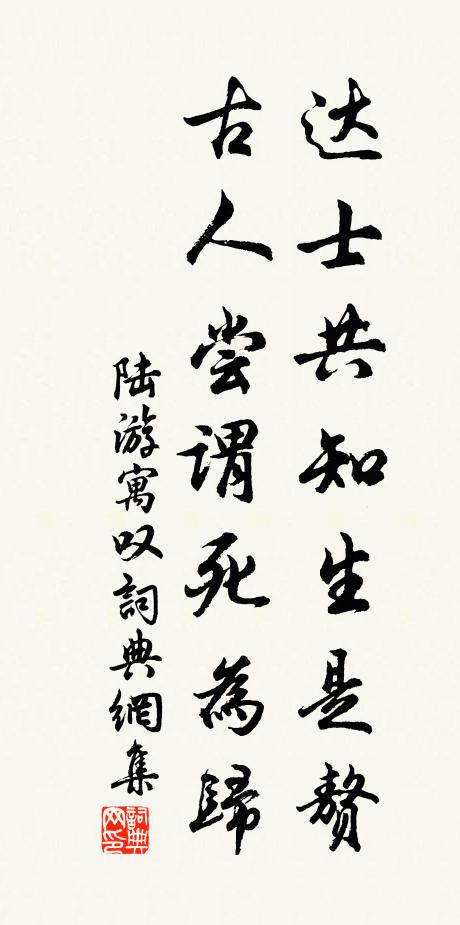 达士共知生是赘
古人尝谓死為歸
陆游寓叹詞典網集
詞典
网印